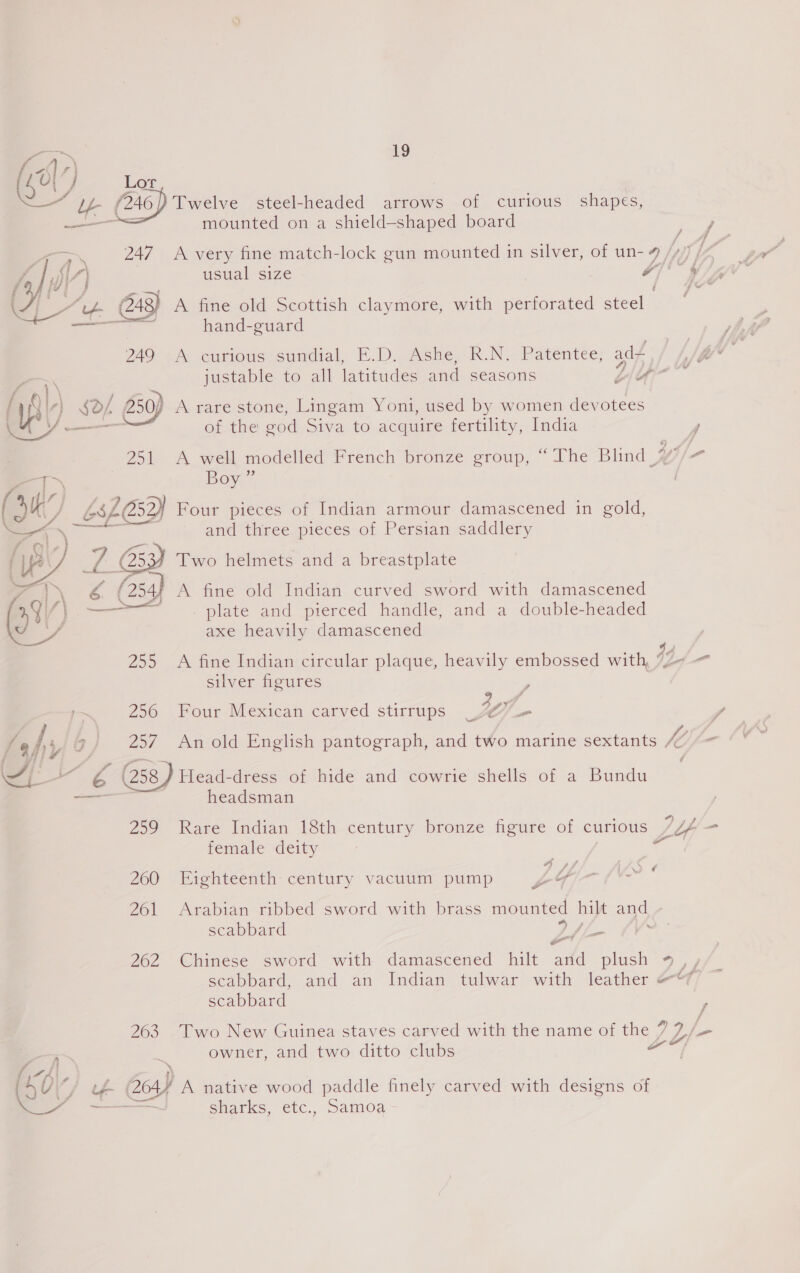 19
Lot
246 Twelve steel-headed arrows of curious shapes,
mounted on a shield-shaped board
247 A very fine match-lock gun mounted in silver, of un-
usual size
248 A fine old Scottish claymore, with perforated steel
hand-guard
249 A curious sundial, E.D. Ashe, R.N. Patentee, ad-
justable to all latitudes and seasons
250 A rare stone, Lingam Yoni, used by women devotees
of the god Siva to acquire fertility, India
251 A well modelled French bronze group, “ The Blind
Boy ”
252 Four pieces of Indian armour damascened in gold,
and three pieces of Persian saddlery
7 253 Two helmets and a breastplate
6 254 A fine old Indian curved sword with damascened
plate and pierced handle, and a double-headed
axe heavily damascened
255 A fine Indian circular plaque, heavily embossed with
silver figures
256 Four Mexican carved stirrups
257 An old English pantograph, and two marine sextants
6 258 Head-dress of hide and cowrie shells of a Bundu
headsman
259 Rare Indian 18th century bronze figure of curious
female deity
260 Eighteenth century vacuum pump
261 Arabian ribbed sword with brass mounted hilt and
scabbard
262 Chinese sword with damascened hilt and plush
scabbard, and an Indian tulwar with leather
scabbard
263 Two New Guinea staves carved with the name of the
owner, and two ditto clubs
264 A native wood paddle finely carved with designs of
sharks, etc., Samoa